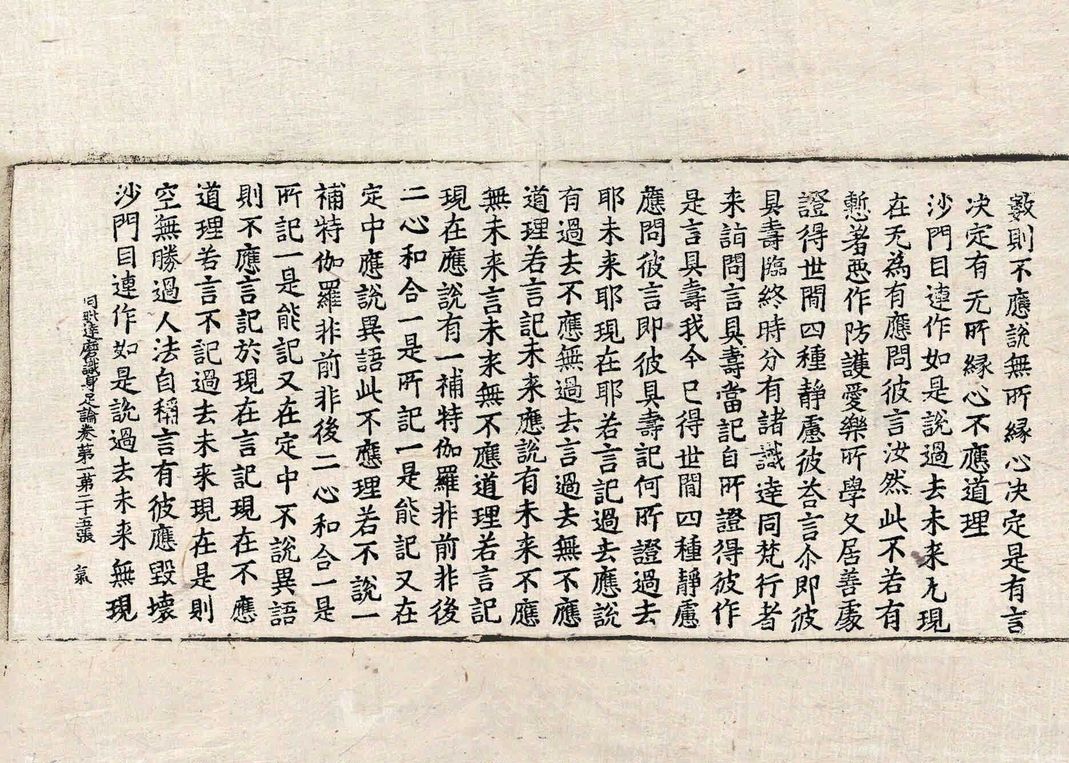 數則不應說無所緣心决定是有言
决定有无所緣心不應道理
沙門目連作如是說過去未来无現
在无為有應問彼言汝然此不若有
慙著惡作防護愛樂所學久居善處
證得世間四種静慮彼荅言尒即彼
具壽臨終時分有諸識達同梵行者
来詣問言具壽當記自所證得彼作
是言具壽我今已得世間四種静慮
應問彼言即彼具壽記何所證過去
耶未来耶現在耶若言記過去應說
有過去不應無過去言過去無不應
道理若言記未来應說有未来不應
無未来言未来無不應道理若言記
現在應說有一補特伽羅非前非後
二心和合一是所記一是能記又在
定中應說異語此不應理若不說一
補特伽羅非前非後二心和合一是
所記一是能記又在定中不說異語
則不應言記於現在言記現在不應
道理若言不記過去未来現在是則
空無勝過人法自稱言有彼應毀壞
沙門目連作如是說過去未来無現
阿毗達磨識身足論卷第一第二十五張 氣